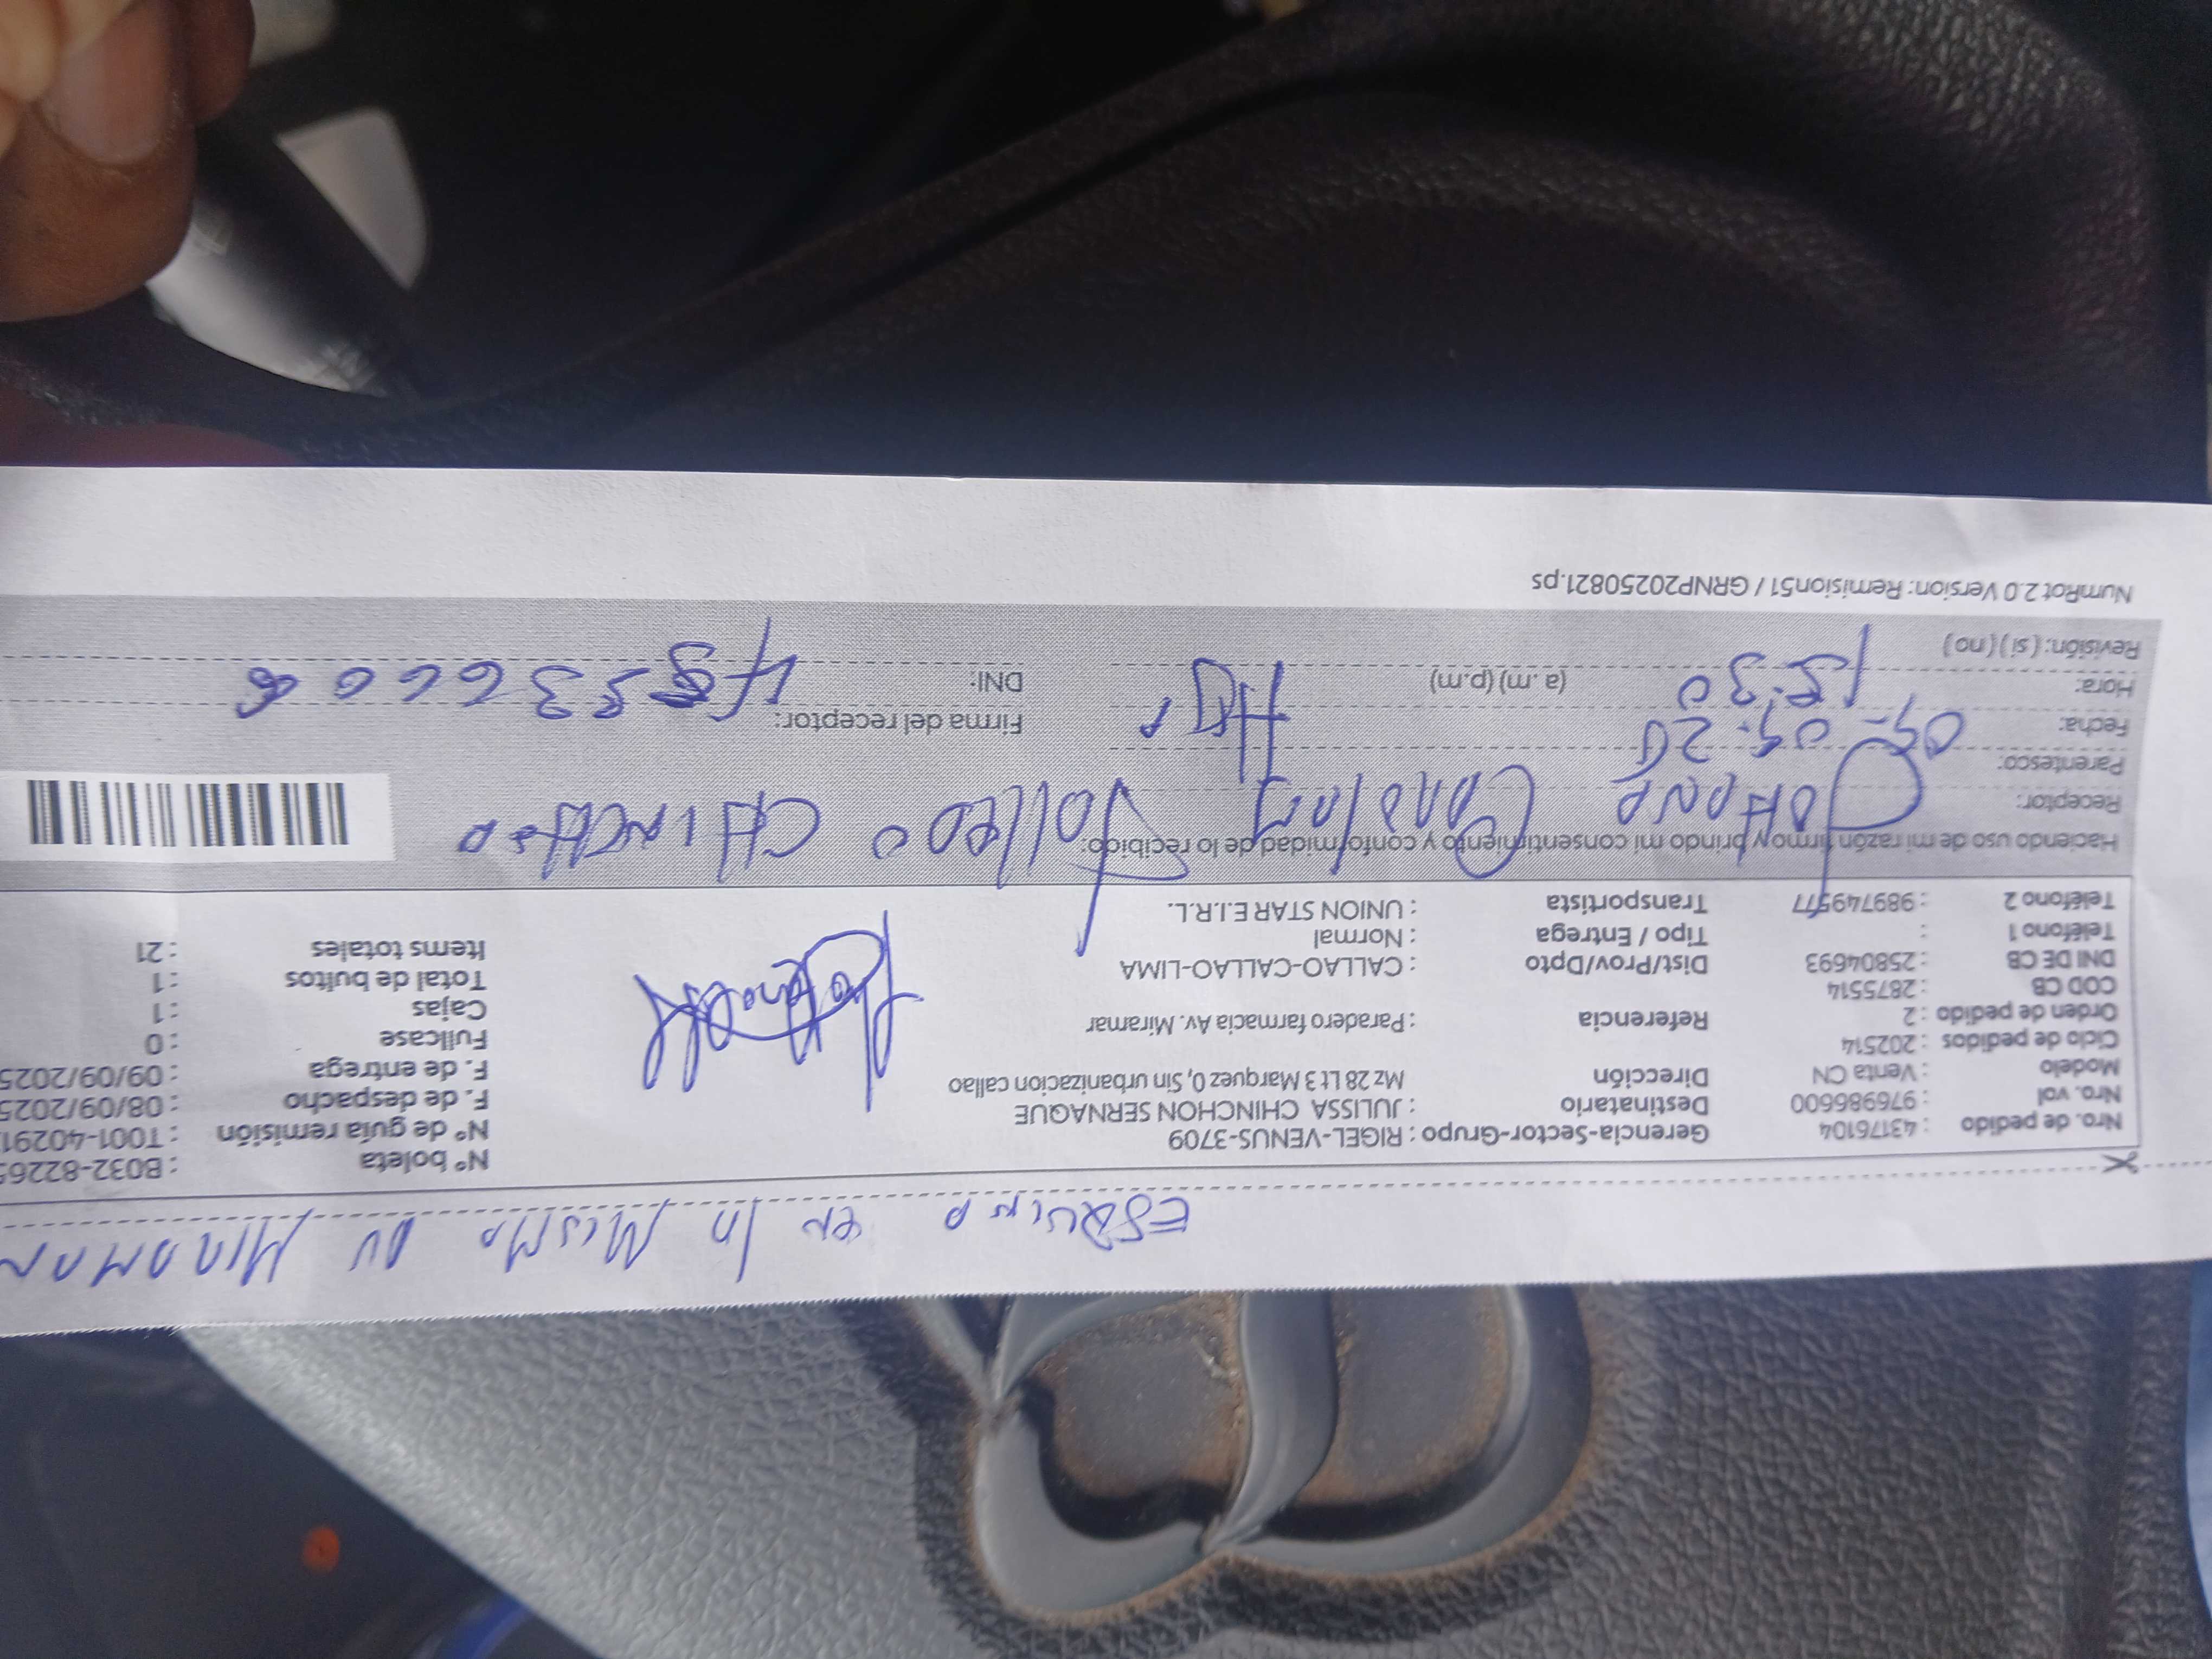 ESQUINA EN la MISMA AV MIRAMAR
Nro. de pedido : 43176104 Gerencia-Sector-Grupo : RIGEL-VENUS-3709 Nº boleta : B032-8226
Nro. vol : 976986600 Destinatario : JULISSA CHINCHON SERNAQUE Nº de guía remisión : T001-4029
Modelo : Venta CN Dirección Mz 28 Lt 3 Marquez 0, Sin urbanizacion callao F. de despacho : 08/09/2025
Ciclo de pedidos : 202514 F. de entrega : 09/09/2025
Orden de pedido : 2 Referencia : Paradero farmacia Av. Miramar Fullcase : 0
COD CB : 2875514 Cajas : 1
DNI DE CB : 25804693 Dist/Prov/Dpto : CALLAO-CALLAO-LIMA Total de bultos : 1
Teléfono 1 : Tipo / Entrega : Normal Items totales : 21
Teléfono 2 : 989749577 Transportista : UNION STAR E.I.R.L.
Haciendo uso de mi razón firmo y brindo mi consentimiento y conformidad de lo recibido:
Receptor: JOHANA CHINCHON
Parentesco:
Fecha: 09-09-25 Firma del receptor:
Hora: 15:30 (a. m) (p.m) DNI:
Revisión: ( si ) ( no )
NumRot 2.0 Version: Remision51 / GRNP20250821.ps